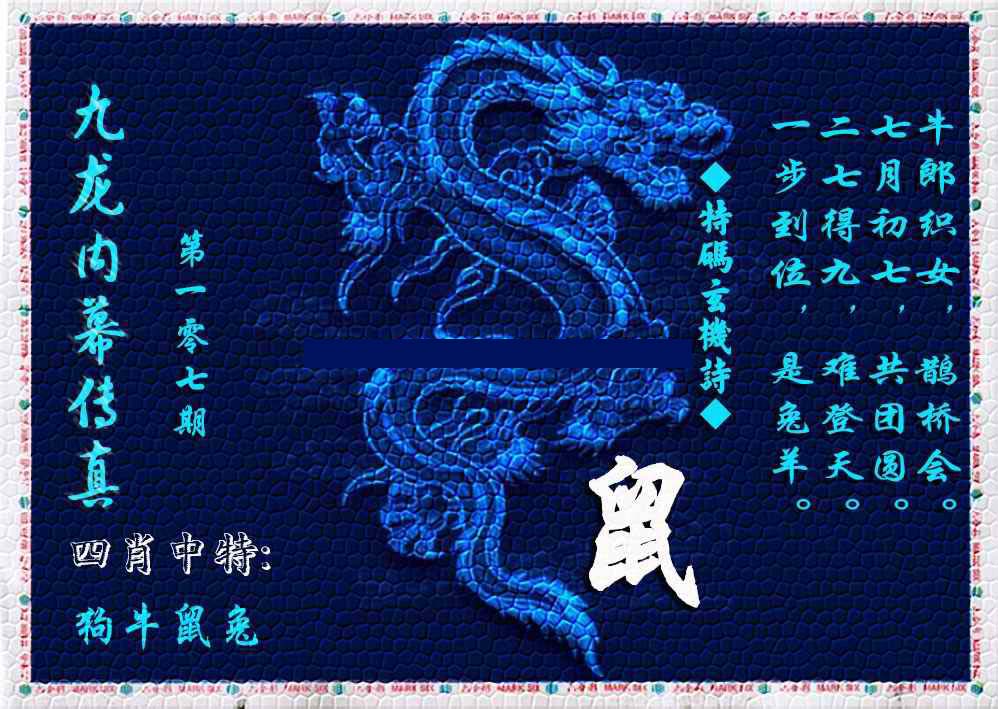 牛郎织女，鹊桥会。
七月初七，共团圆。
二七得九，难登天。
一步到位，是兔羊。
◆特碼玄機詩◆
九龙内幕传真
第一零七期
鼠
四肖中特:
狗牛鼠兔
六合彩 MARK SIX